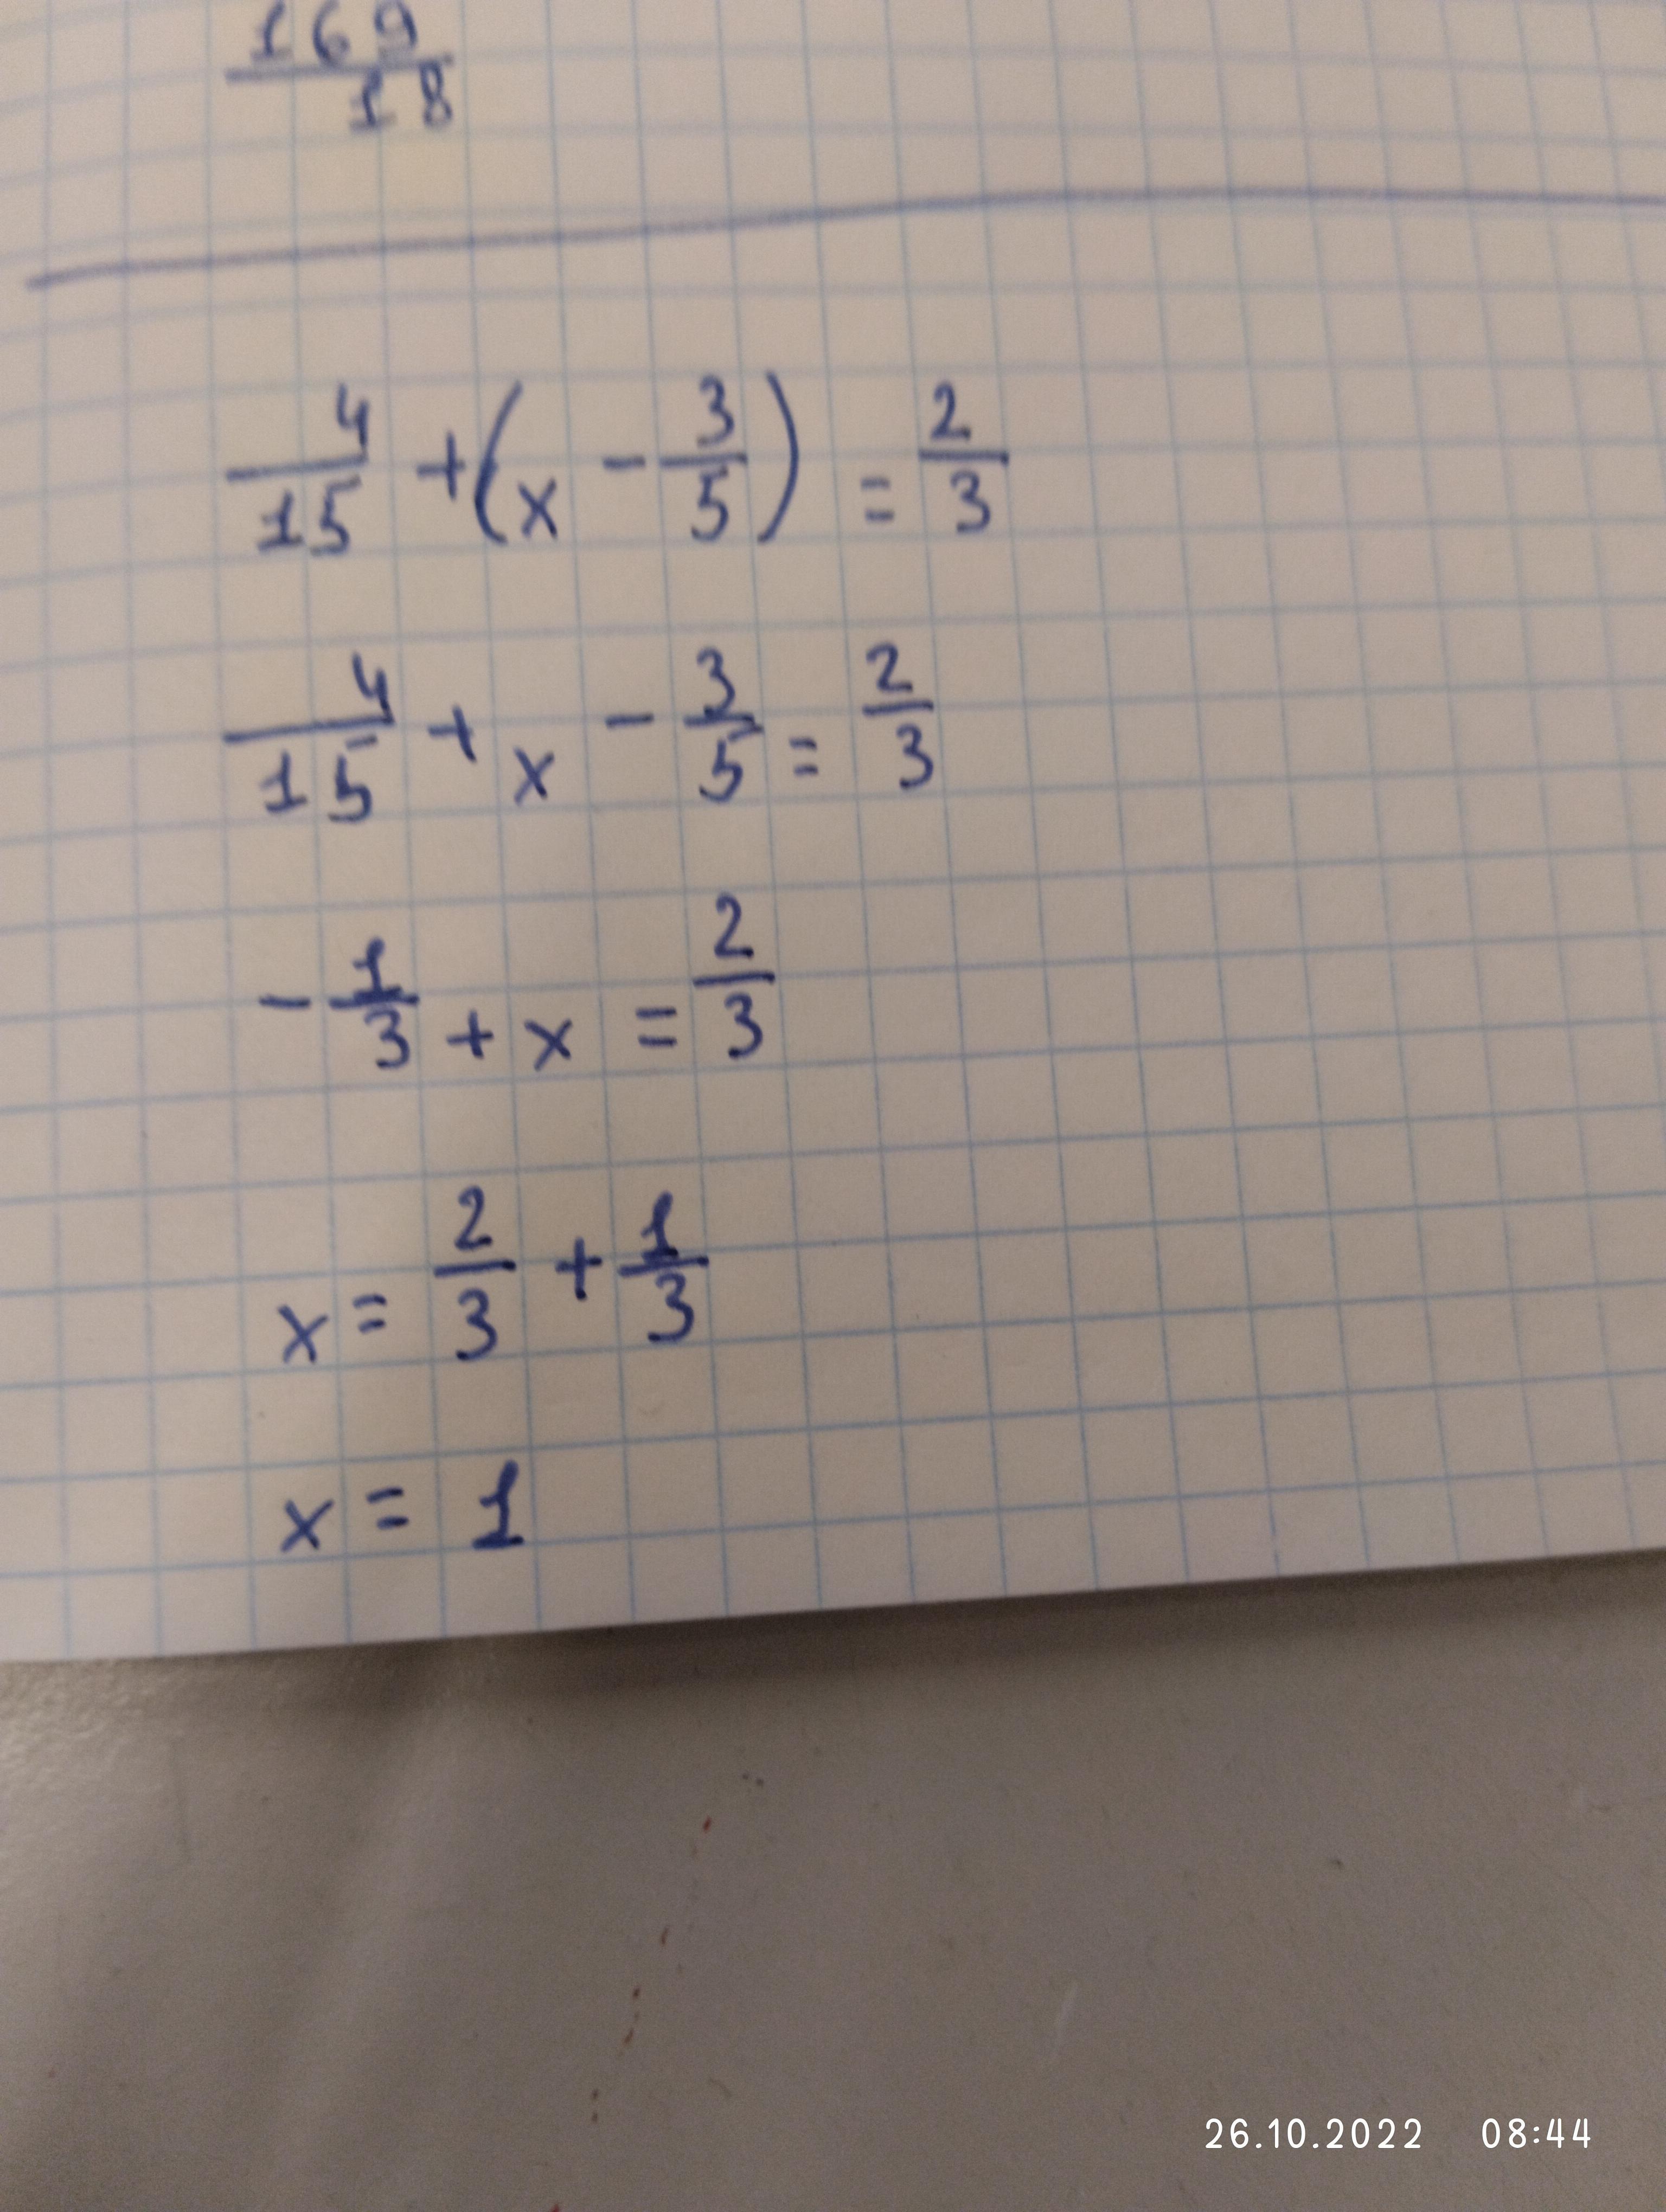 169/18
4/15 + (x - 3/5) = 2/3
4/15 + x - 3/5 = 2/3
- 1/3 + x = 2/3
x = 2/3 + 1/3
x = 1
26.10.2022 08:44